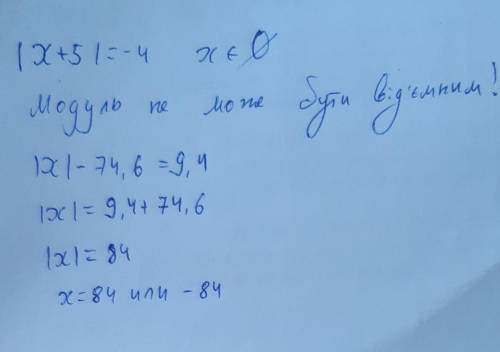 |x+5|=-4 x∈∅
Модуль не може бути від'ємним!
|x|-74,6=9,4
|x|=9,4+74,6
|x|=84
x=84 или -84